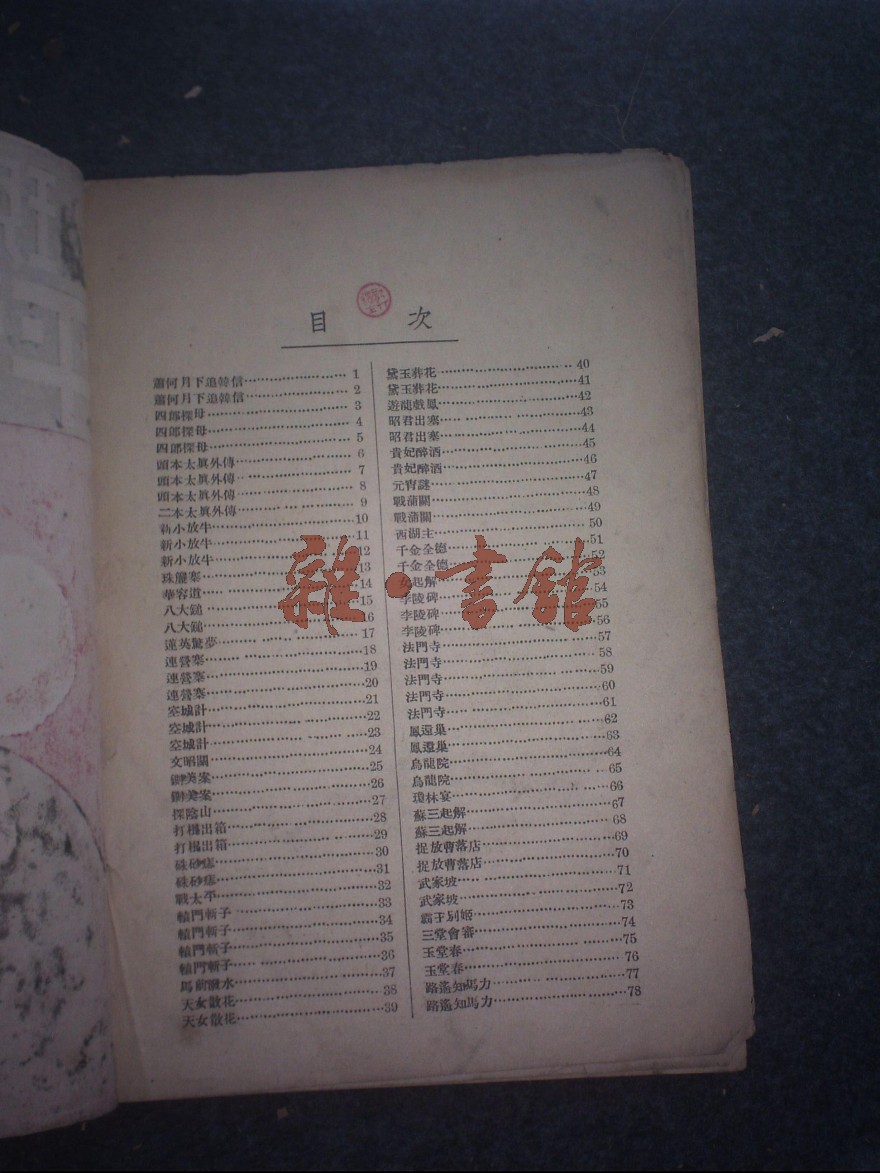 目次
蕭何月下追韓信 1
蕭何月下追韓信 2
四郎探母 3
四郎探母 4
四郎探母 5
頭本太眞外傳 6
頭本太眞外傳 7
頭本太眞外傳 8
二本太眞外傳 9
新小放牛 10
新小放牛 11
新小放牛 12
珠簾寨 13
華容道 14
八大鎚 15
八大鎚 16
蓮英驚夢 17
連營寨 18
連營寨 19
連營寨 20
空城計 21
空城計 22
空城計 23
文昭關 24
鍘美案 25
鍘美案 26
探陰山 27
打棍出箱 28
打棍出箱 29
硃砂痣 30
硃砂痣 31
戰太平 32
轅門斬子 33
轅門斬子 34
轅門斬子 35
轅門斬子 36
馬前潑水 37
天女散花 38
天女散花 39
黛玉葬花 40
黛玉葬花 41
遊龍戲鳳 42
昭君出塞 43
昭君出塞 44
貴妃醉酒 45
貴妃醉酒 46
元宵謎 47
戰蒲關 48
戰蒲關 49
西湖主 50
千金全德 51
千金全德 52
女起解 53
李陵碑 54
李陵碑 55
李陵碑 56
法門寺 57
法門寺 58
法門寺 59
法門寺 60
法門寺 61
鳳還巢 62
鳳還巢 63
烏龍院 64
烏龍院 65
瓊林宴 66
蘇三起解 67
蘇三起解 68
捉放曹落店 69
捉放曹落店 70
武家坡 71
武家坡 72
霸王别姬 73
三堂會審 74
玉堂春 75
玉堂春 76
路遙知馬力 77
路遙知馬力 78
雜·書館